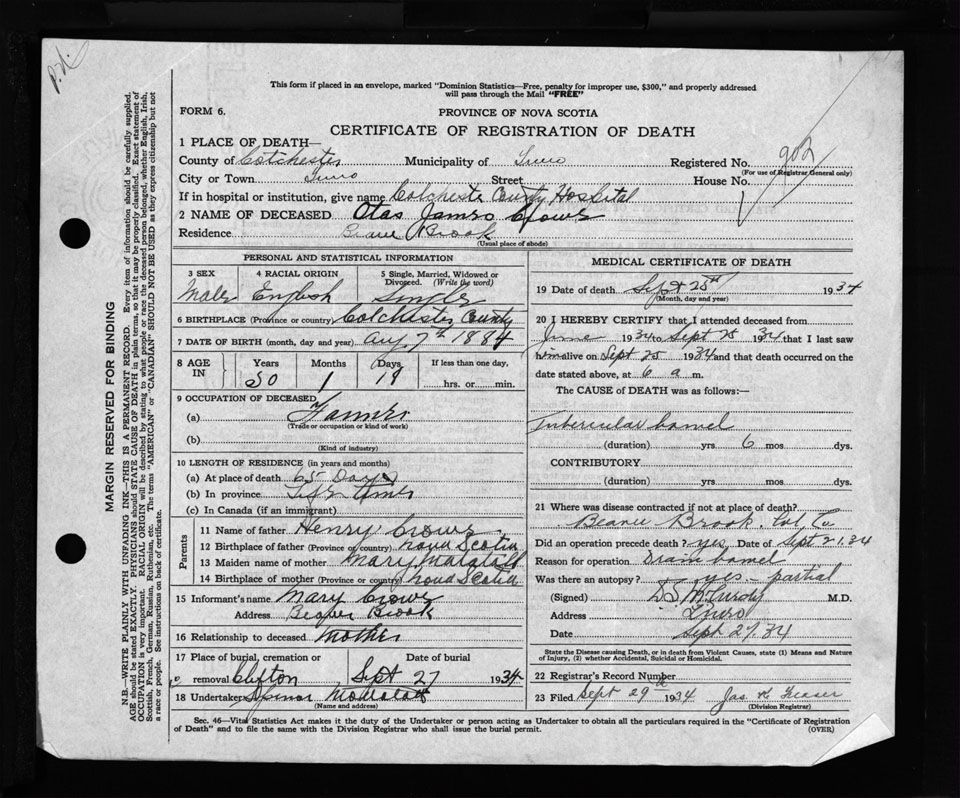 P.N.
This form if placed in an envelope, marked "Dominion Statistics—Free, penalty for improper use, $300," and properly addressed
will pass through the Mail "FREE"
FORM 6.
PROVINCE OF NOVA SCOTIA
CERTIFICATE OF REGISTRATION OF DEATH
902
1 PLACE OF DEATH—
County of Colchester Municipality of Truro Registered No.
(For use of Registrar General only)
City or Town Truro Street House No.
If in hospital or institution, give name Colchester County Hospital
2 NAME OF DECEASED James Crowe
Residence Brook
(Usual place of abode)
PERSONAL AND STATISTICAL INFORMATION
3 SEX 4 RACIAL ORIGIN 5 Single, Married, Widowed or Divorced. (Write the word)
Male English Single
6 BIRTHPLACE (Province or country) Colchester County
7 DATE OF BIRTH (month, day and year) Aug 7th 1884
8 AGE IN Years Months Days If less than one day,
50 1 19 hrs. or min.
9 OCCUPATION OF DECEASED
(a) Farmer
(Trade or occupation or kind of work)
(b)
(Kind of industry)
10 LENGTH OF RESIDENCE (in years and months)
(a) At place of death 65 Days
(b) In province Life time
(c) In Canada (if an immigrant)
Parents
11 Name of father Henry Crowe
12 Birthplace of father (Province or country) Nova Scotia
13 Maiden name of mother Mary
14 Birthplace of mother (Province or country) Nova Scotia
15 Informant's name Mary Crowe
Address Beaver Brook
16 Relationship to deceased Mother
17 Place of burial, cremation or removal Date of burial
Clifton Sept 27 1934
18 Undertaker
(Name and address)
MEDICAL CERTIFICATE OF DEATH
19 Date of death Sept 25th 1934
(Month, day and year)
20 I HEREBY CERTIFY that I attended deceased from
June 1934 to Sept 25 1934 that I last saw
him alive on Sept 25 1934 and that death occurred on the
date stated above, at 6 a m.
The CAUSE OF DEATH was as follows:—
Tubercular bowel
(duration) yrs 6 mos dys.
CONTRIBUTORY
(duration) yrs. mos. dys.
21 Where was disease contracted if not at place of death?
Beaver Brook. Col. Co.
Did an operation precede death? yes Date of Sept 21.34
Reason for operation Drain bowel
Was there an autopsy? yes - partial
(Signed) McCurdy M.D.
Address Truro
Date Sept 27.34
State the Disease causing Death, or in Death from Violent Causes, state (1) Means and Nature
of Injury, (2) whether Accidental, Suicidal or Homicidal.
22 Registrar's Record Number
23 Filed Sept 29th 1934 Jas Fraser
(Division Registrar)
Sec. 46—Vital Statistics Act makes it the duty of the Undertaker or person acting as Undertaker to obtain all the particulars required in the "Certificate of Registration
of Death" and to file the same with the Division Registrar who shall issue the burial permit.
(OVER)
MARGIN RESERVED FOR BINDING
N.B.—WRITE PLAINLY WITH UNFADING INK—THIS IS A PERMANENT RECORD. Every item of information should be carefully supplied.
AGE should be stated EXACTLY. PHYSICIANS should STATE CAUSE OF DEATH in plain terms, so that it may be properly classified. Exact statement of
OCCUPATION is very important. RACIAL ORIGIN will be described by stating to what people or race the deceased person belonged, whether English, Irish,
Scottish, French, German, Russian, Ruthenian, etc. The terms "AMERICAN" or "CANADIAN" SHOULD NOT BE USED as they express citizenship but not
a race or people. See instructions on back of certificate.